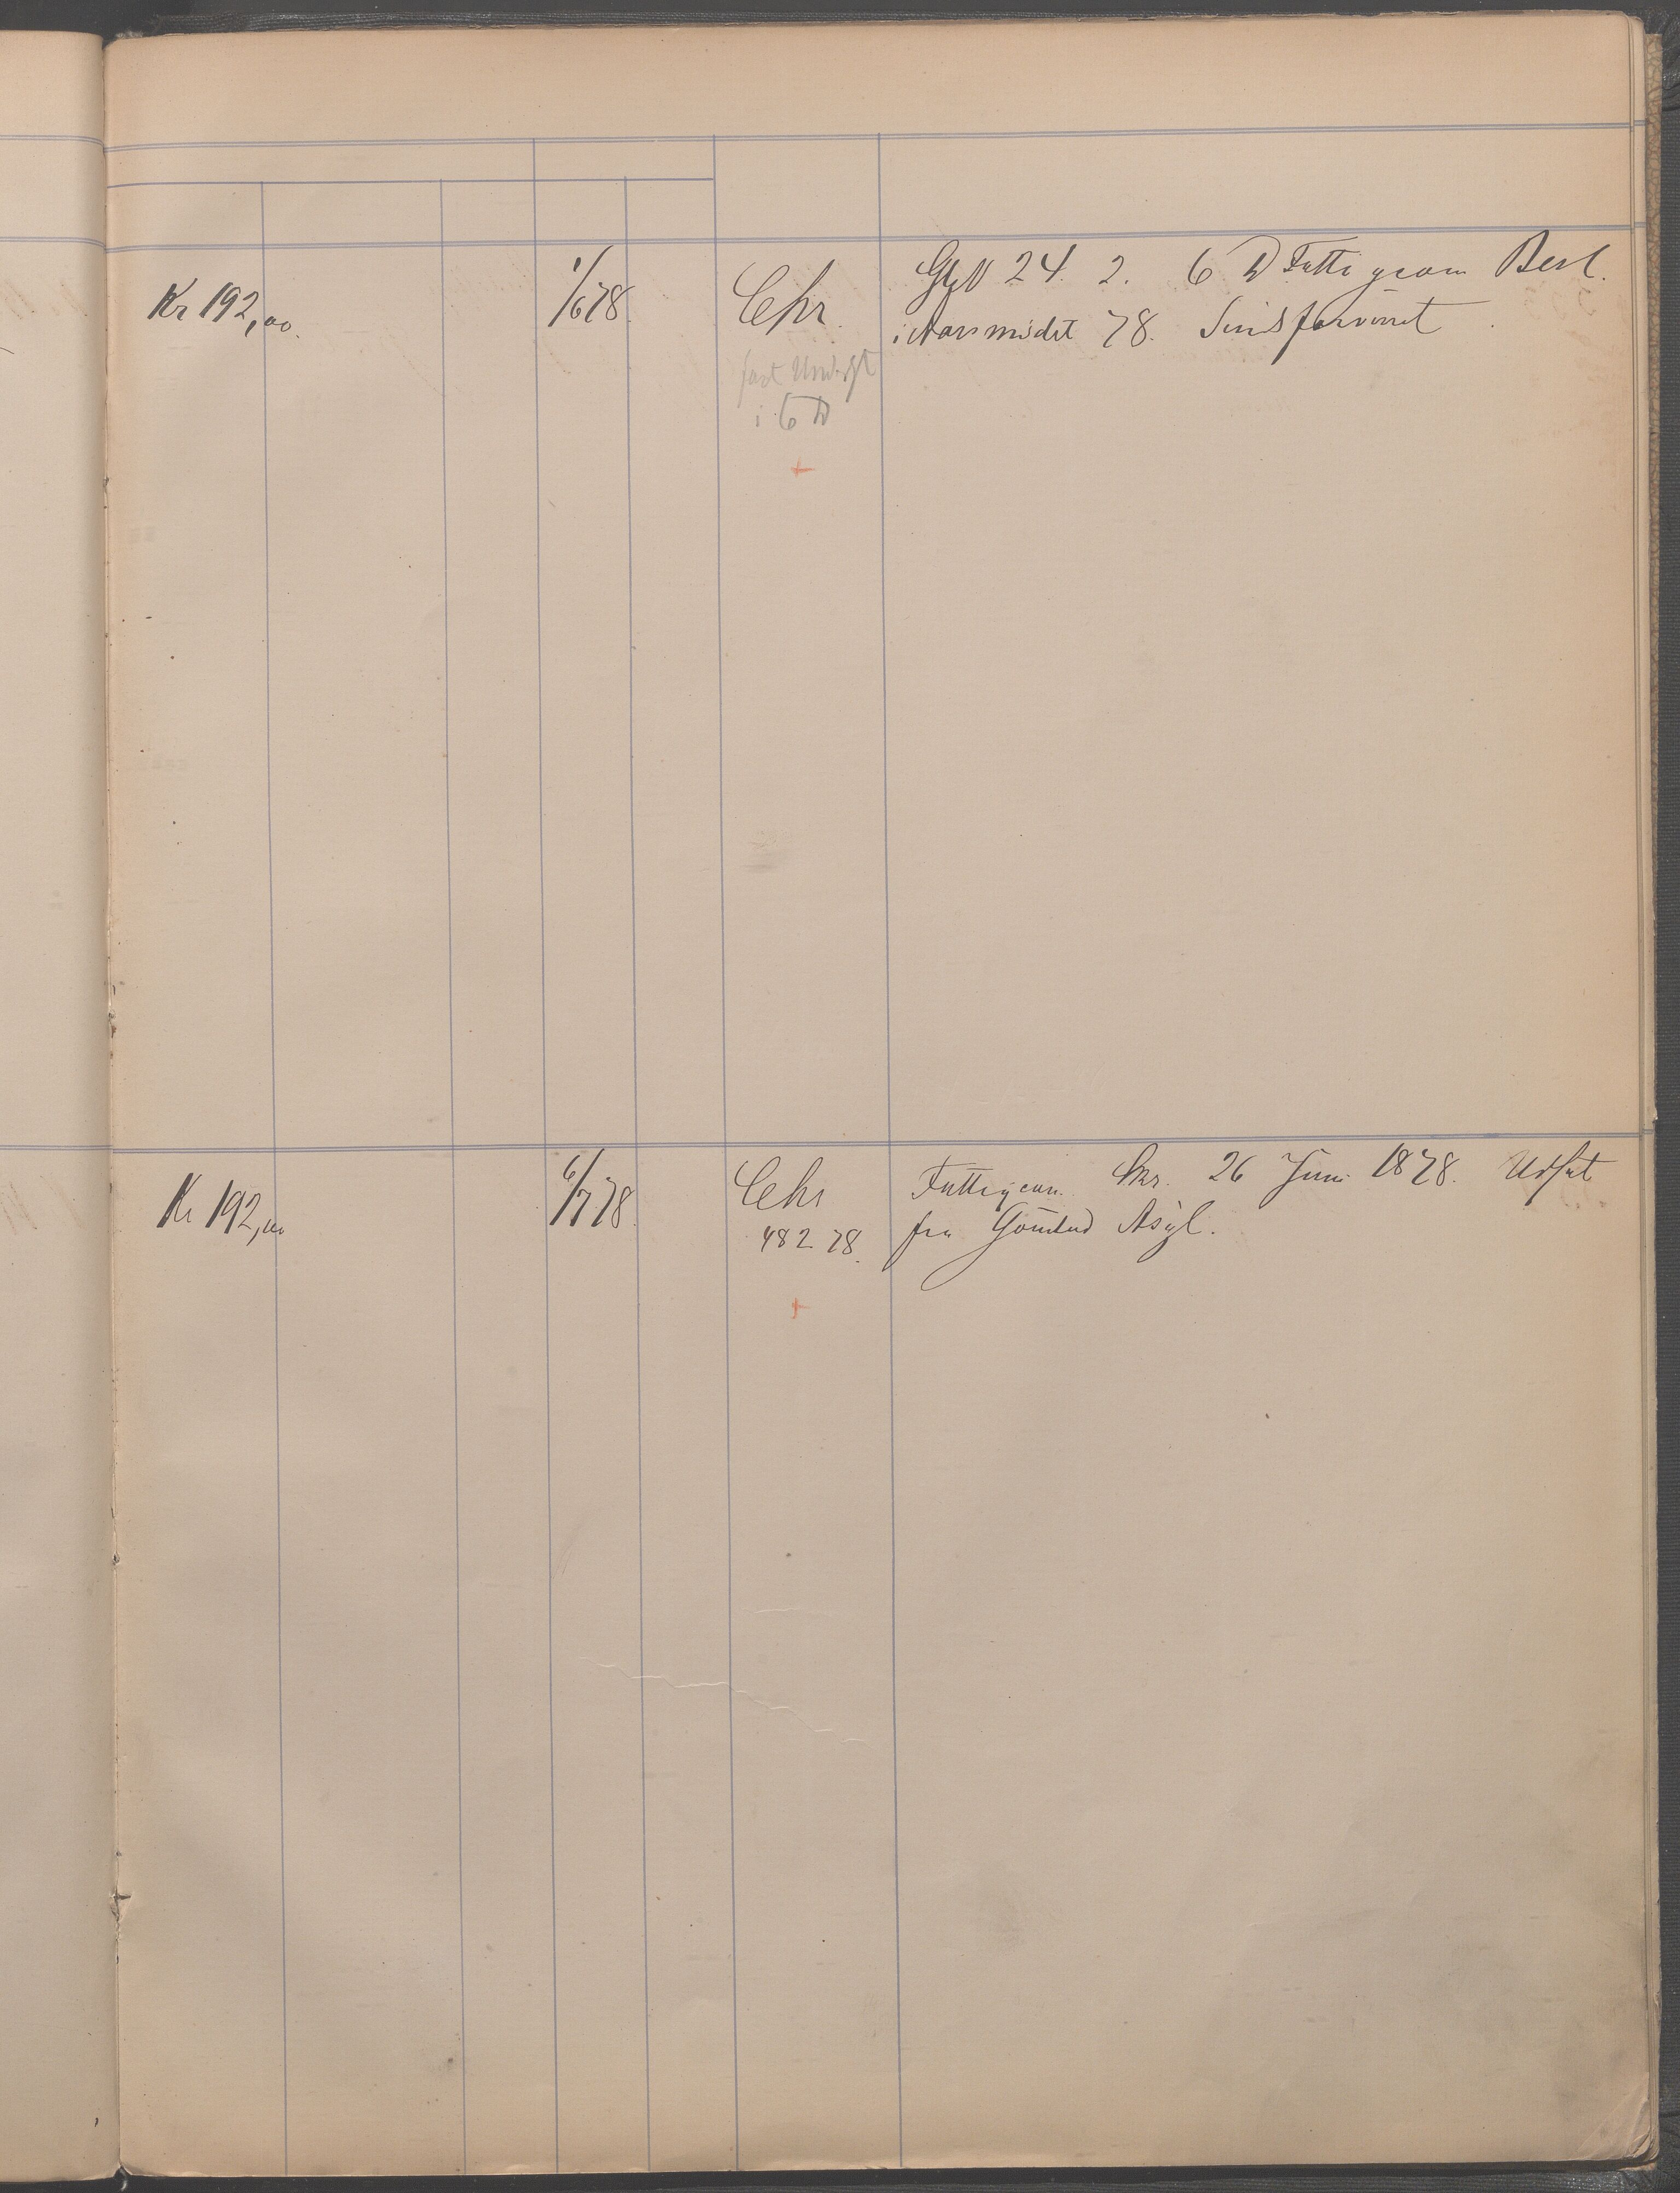 Kr 192,00.
1/6 78.
Chr.
fast Underst
i 6 D
24. 2. 6 D Fattigcom Besl.
i Marsmødet 78. Sindsforvirret
Kr 192,00
6/7 78.
Chr
482 78.
Fattigcom. Skr. 26 Juni 1878. Udsat
fra Gaustad Asyl.